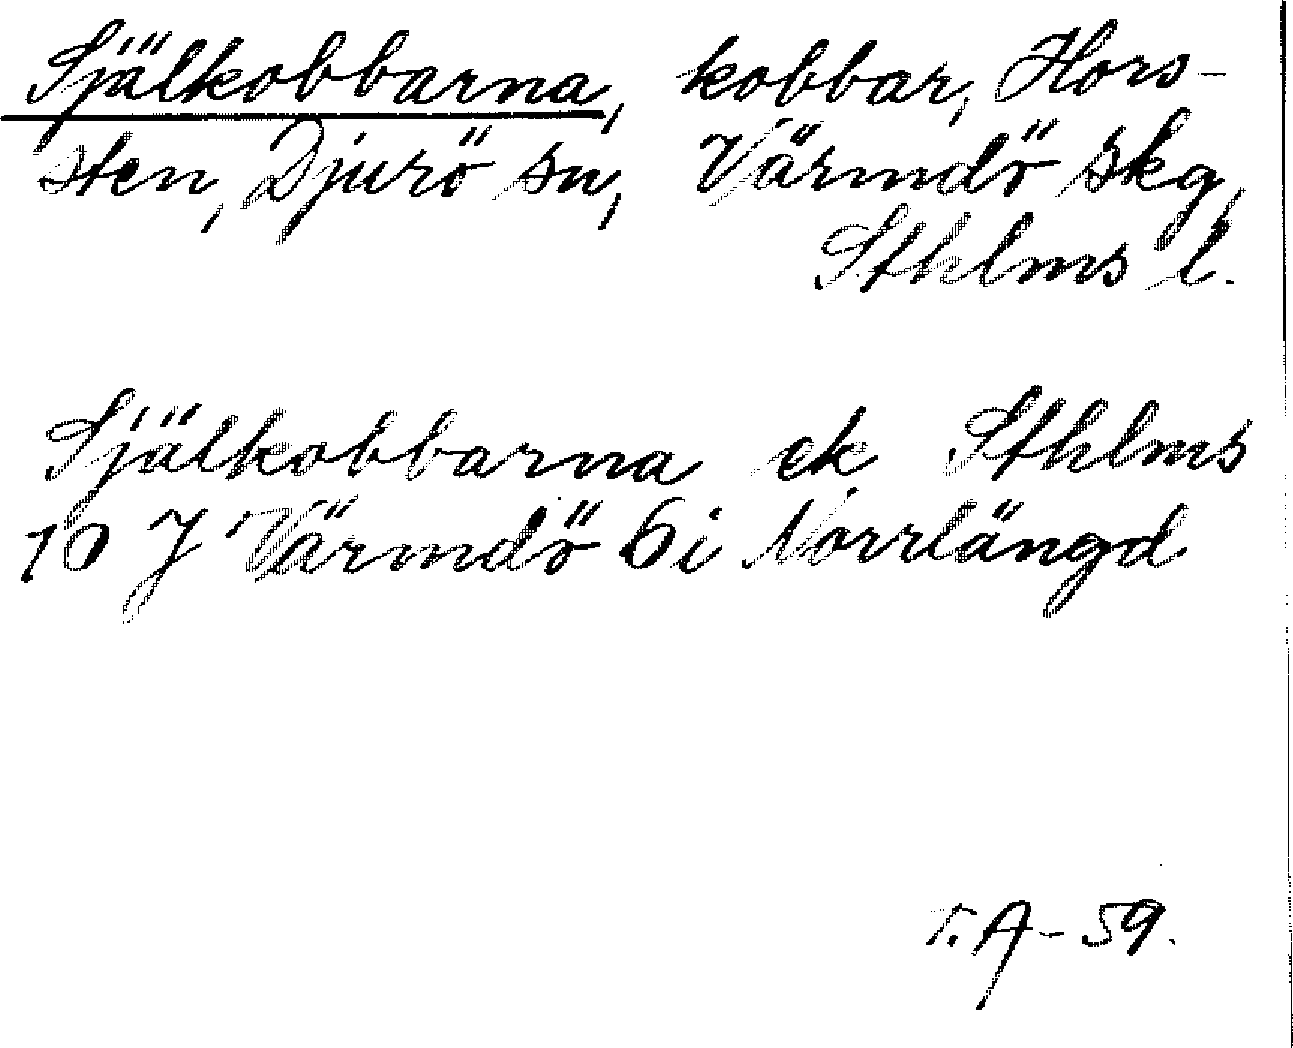 Själkobbarna, kobbar, Hors-
sten, Djurö sn, Värmdö skg,
Sthlms l.
Själkobbarna ek Sthlms
10 J Värmdö 6i Norrlängd
T. A-59.